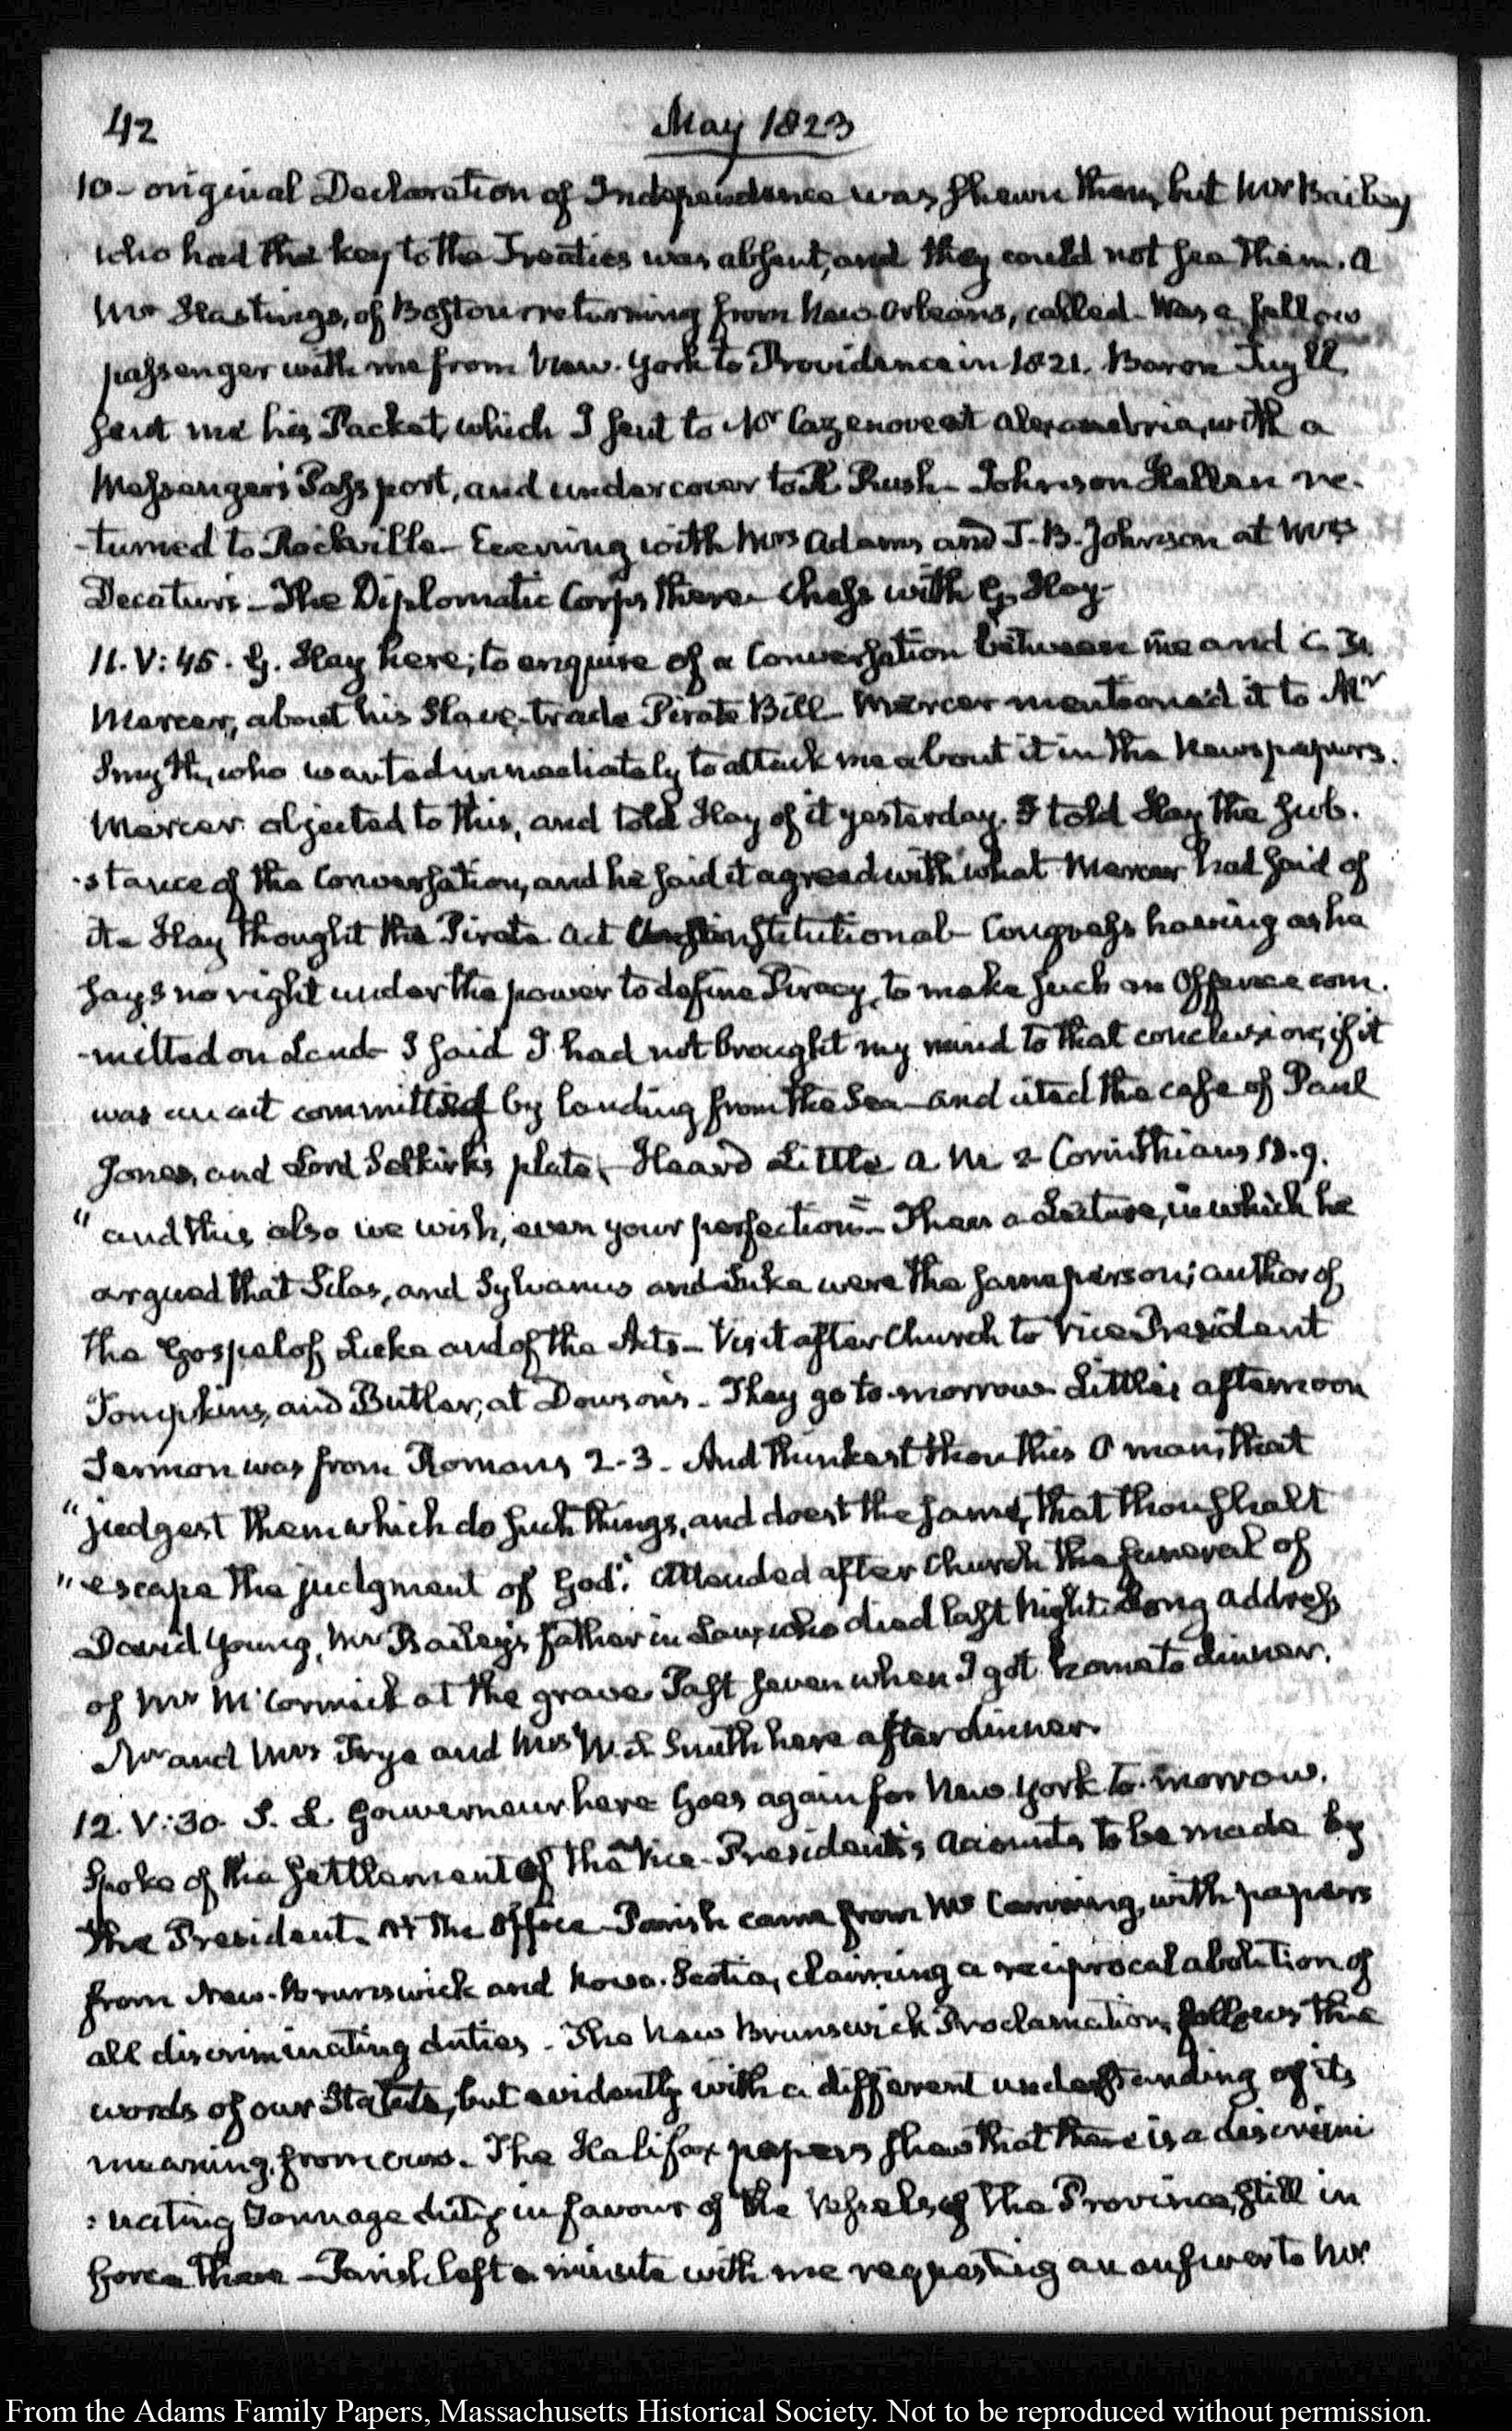 42 May 1823
10 - original Declaration of Independence was shewn them, but Mr Bailey
who had the key to the Treaties was absent, and they could not see them. A
Mr Hastings, of Boston returning from New-Orleans, called. Was a fellow
passenger with me from New-York to Providence in 1821. Baron Tuyll
sent me his Packet, which I sent to Mr Cazenove at Alexandria, with a
Messenger's Passport, and under cover to R. Rush - Johnson Hellen re-
-turned to Rockville - Evening with Mrs Adams and T. B. Johnson at Mrs
Decatur's - The Diplomatic Corps there - Chess with G. Hay -
11. V:45. G. Hay here; to enquire of a Conversation between me and C. F.
Mercer, about his Slave-trade Pirate Bill - Mercer mentioned it to Mr
Smyth, who wanted immediately to attack me about it in the Newspapers.
Mercer objected to this, and told Hay of it yesterday. I told Hay the sub-
-stance of the Conversation, and he said it agreed with what Mercer had said of
it - Hay thought the Pirate Act Unconstitutional - Congress having as he
says no right under the power to define Piracy, to make such an Offence com-
-mitted on Land - I said I had not brought my mind to that conclusion, if it
was an act committed by landing from the Sea - and cited the case of Paul
Jones, and Lord Selkirk's plate - Heard Little A.M. 2 Corinthians 13.9.
"and this also we wish, even your perfection" - Then a Lecture, in which he
argued that Silas, and Sylvanus and Luke were the same person; author of
the Gospel of Luke and of the Acts - Visit after Church to Vice President
Tompkins, and Butler, at Dowson's - They go to-morrow. Little's afternoon
Sermon was from Romans 2-3 - And thinkest thou this O man, that
"judgest them which do such things, and doest the same, that thou shalt
"escape the judgment of God". Attended after Church the funeral of
David Young, Mr Bailey's father in Law, who died last Night. Long address
of Mr McCormick at the grave. Past seven when I got home to dinner.
Mr and Mrs Frye and Mrs W. S. Smith here after dinner.
12. V:30. S. L. Gouverneur here Goes again for New York to-morrow.
Spoke of the settlement of the Vice-President's Accounts to be made by
the President. At the Office - Parish came from Mr Canning, with papers
from New-Brunswick and Nova-Scotia, claiming a reciprocal abolition of
all discriminating duties - The New Brunswick Proclamation, follows the
words of our Statute, but evidently with a different understanding of its
meaning, from ours - The Halifax papers shew that there is a discrimi
:nating Tonnage duty in favour of the Vessels of the Province, still in
force there - Parish left a minute with me requesting an answer to Mr
From the Adams Family Papers, Massachusetts Historical Society. Not to be reproduced without permission.